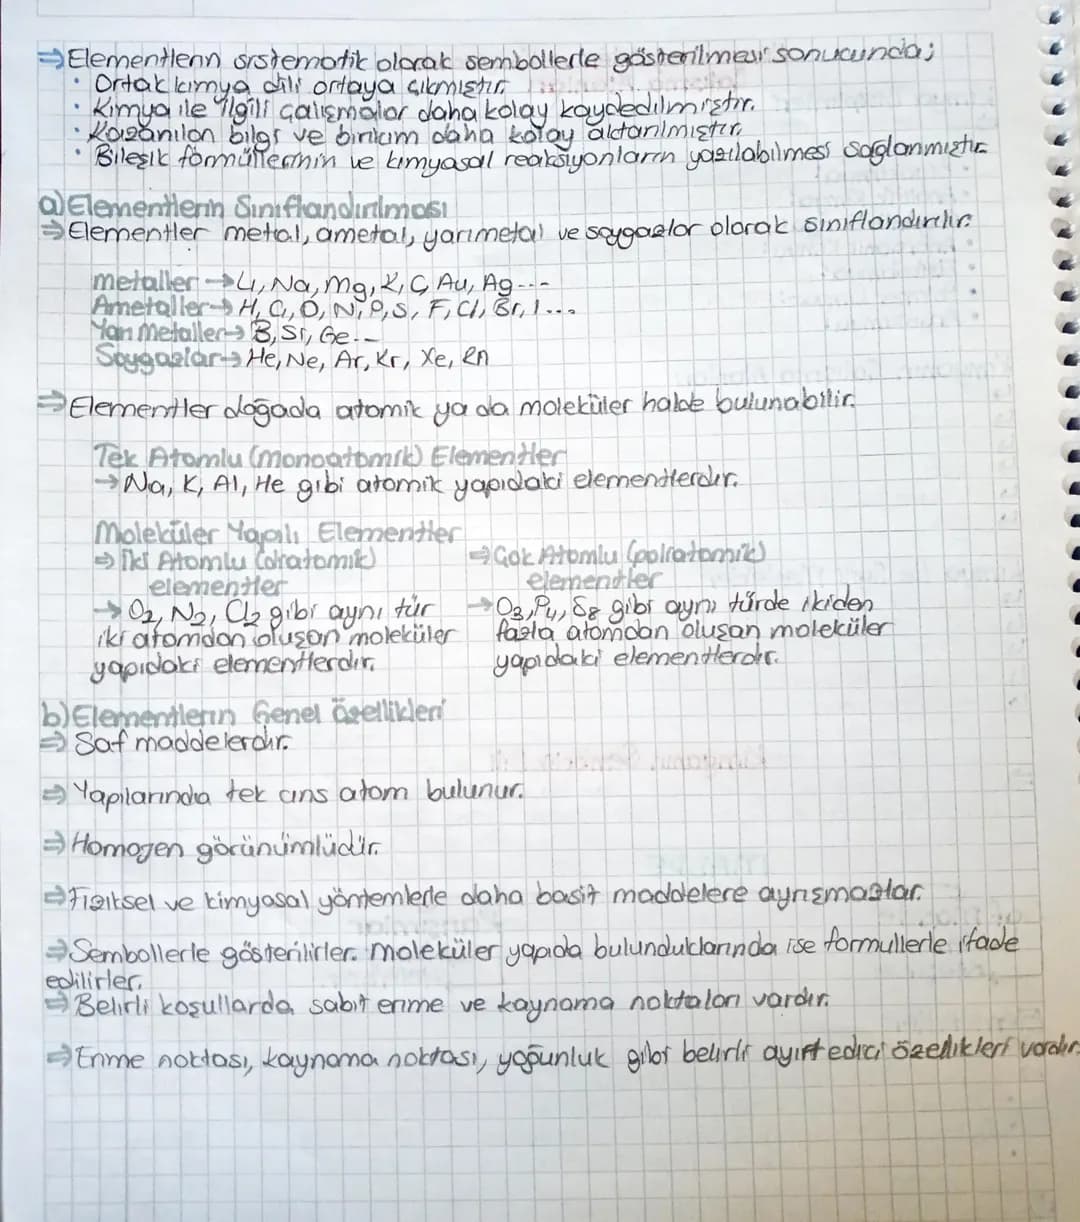 ⇒Elementlerin sistematik olarak sembollerle gösterilmesi sonucunda;
• Ortak kimya dili ortaya çıkmıştır.
• Kimya ile ilgili çalışmalar daha kolay kaydedilmiştir.
• Kazanılan bilgi ve birikim daha kolay aktarılmıştır.
• Bileşik formüllerinin ve kimyasal reaksiyonların yazılabilmesi sağlanmıştır.
a)Elementlerin Sınıflandırılması
⇒Elementler metal, ametal, yarımetal ve soygazlar olarak sınıflandırılır.
metaller→Li, Na, Mg, K, C, Au, Ag...
Ametaller→H, C, O, N, P, S, F, Cl, Br, I...
Yarı Metaller→B, Si, Ge...
Soygazlar→He, Ne, Ar, Kr, Xe, Rn
⇒Elementler doğada atomik ya da moleküler halde bulunabilir.
Tek Atomlu (monoatomik) Elementler
→Na, K, Al, He gibi atomik yapıdaki elementlerdir.
Moleküler Yapılı Elementler
⇒İki Atomlu (diatomik)
elementler
→O2, N2, Cl2 gibi aynı tür
iki atomdan oluşan moleküler
yapıdaki elementlerdir.
⇒Çok Atomlu (poliatomik)
elementler
→O3, P4, S8 gibi aynı türde ikiden
fazla atomdan oluşan moleküler
yapıdaki elementlerdir.
b)Elementlerin Genel özellikleri
⇒Saf maddelerdir.
⇒Yapılarında tek cins atom bulunur.
⇒Homojen görünümlüdür.
⇒Fiziksel ve kimyasal yöntemlerle daha basit maddelere ayrışmazlar.
⇒Sembollerle gösterilirler. Moleküler yapıda bulunduklarında ise formullerle ifade
edilirler.
⇒Belirli koşullarda sabit erime ve kaynama noktaları vardır.
⇒Erime noktası, kaynama noktası, yoğunluk gibi belirli ayırt edici özellikleri vardır.